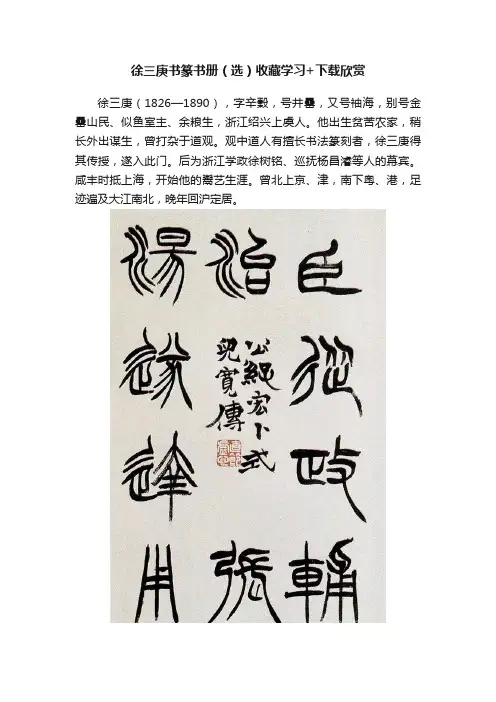 徐三庚书篆书册（选）收藏学习+下载欣赏
徐三庚（1826—1890），字辛穀，号井罍，又号袖海，别号金
罍山民、似鱼室主、余粮生，浙江绍兴上虞人。他出生贫苦农家，稍
长外出谋生，曾打杂于道观。观中道人有擅长书法篆刻者，徐三庚得
其传授，遂入此门。后为浙江学政徐树铭、巡抚杨昌濬等人的幕宾。
咸丰时抵上海，开始他的鬻艺生涯。曾北上京、津，南下粤、港，足
迹遍及大江南北，晚年回沪定居。
臣從政輔
治
公孫宏卜式
兒寬傳
張
湯遂達用